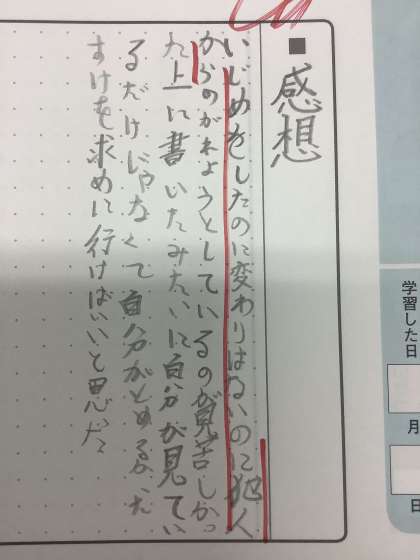 ■感想
いじめをしたのに変わりはないのに犯人
からのがれようとしているのが見苦しかっ
た上に書いたみたいに自分が見てい
るだけじゃなくて自分がとめるかた
すけを求めに行けばいいと思った
学習した日
月
日